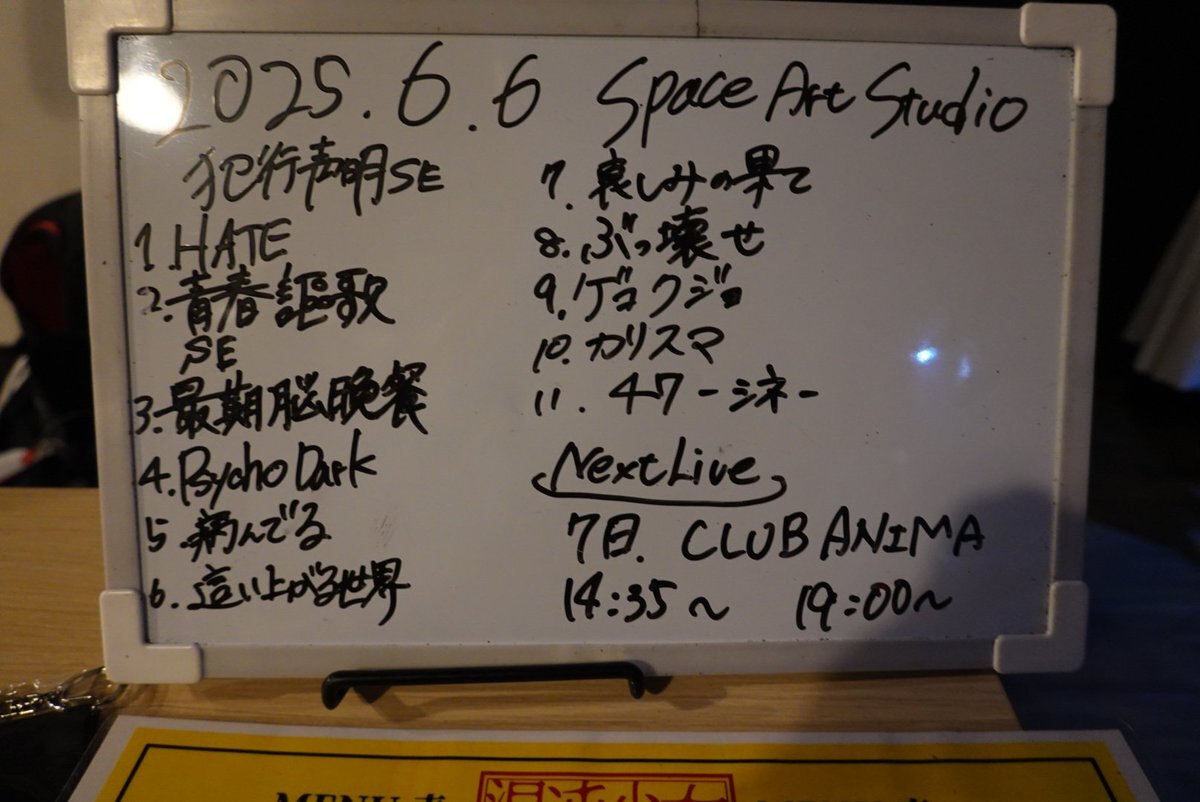 2025.6.6 Space Art Studio
犯行声明SE
1.HATE
2.青春謳歌
SE
3.最期脳晩餐
4.Psycho Dark
5.病んでる
6.這い上がる世界
7.哀しみの果て
8.ぶっ壊せ
9.ゲコクジョ
10.カリスマ
11.47-シネ-
Next Live
7日. CLUB ANIMA
14:35～ 19:00～
MENU表